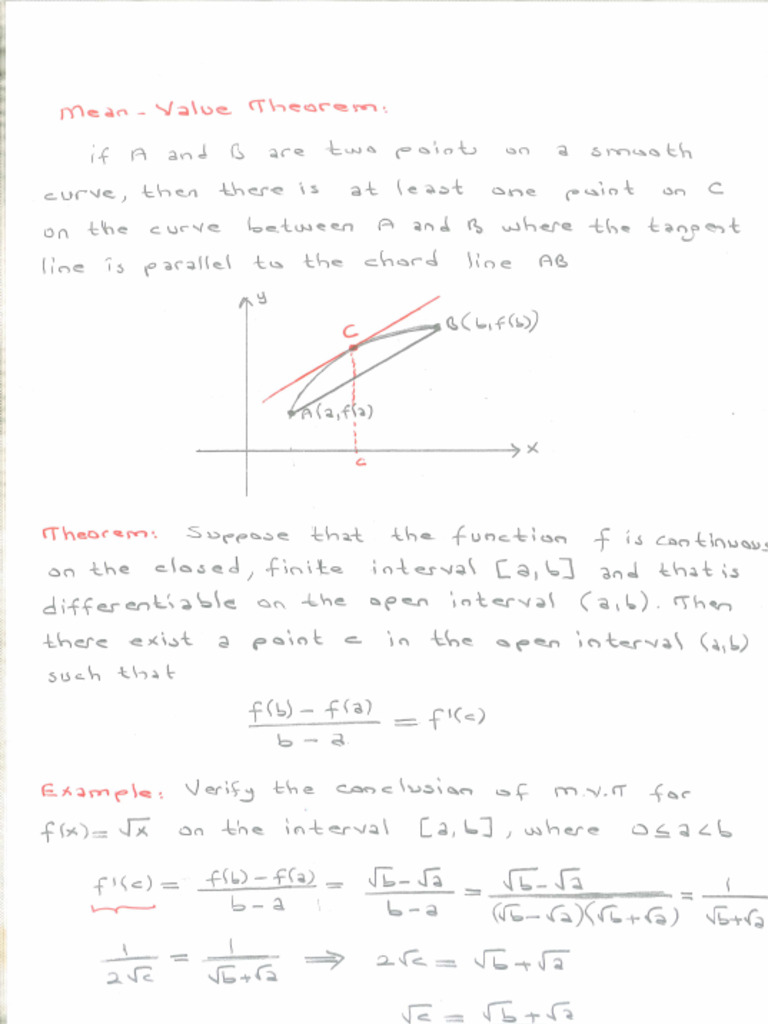 Mean-Value Theorem:
if A and B are two points on a smooth
curve, then there is at least one point on C
on the curve between A and B where the tangent
line is parallel to the chord line AB
y
C
B(b,f(b))
A(a,f(a)
x
c
Theorem: Suppose that the function f is continuous
on the closed, finite interval [a,b] and that is
differentiable on the open interval (a,b). Then
there exist a point c in the open interval (a,b)
such that
(f(b) - f(a))/(b - a) = f'(c)
Example: Verify the conclusion of m.v.T for
f(x) = √x on the interval [a,b], where 0 ≤ a < b
f'(c) = (f(b) - f(a))/(b - a) = (√b - √a)/(b - a) = (√b - √a)/((√b - √a)(√b + √a)) = 1/(√b + √a)
1/(2√c) = 1/(√b + √a) ⇒ 2√c = √b + √a
√c = √b + √a